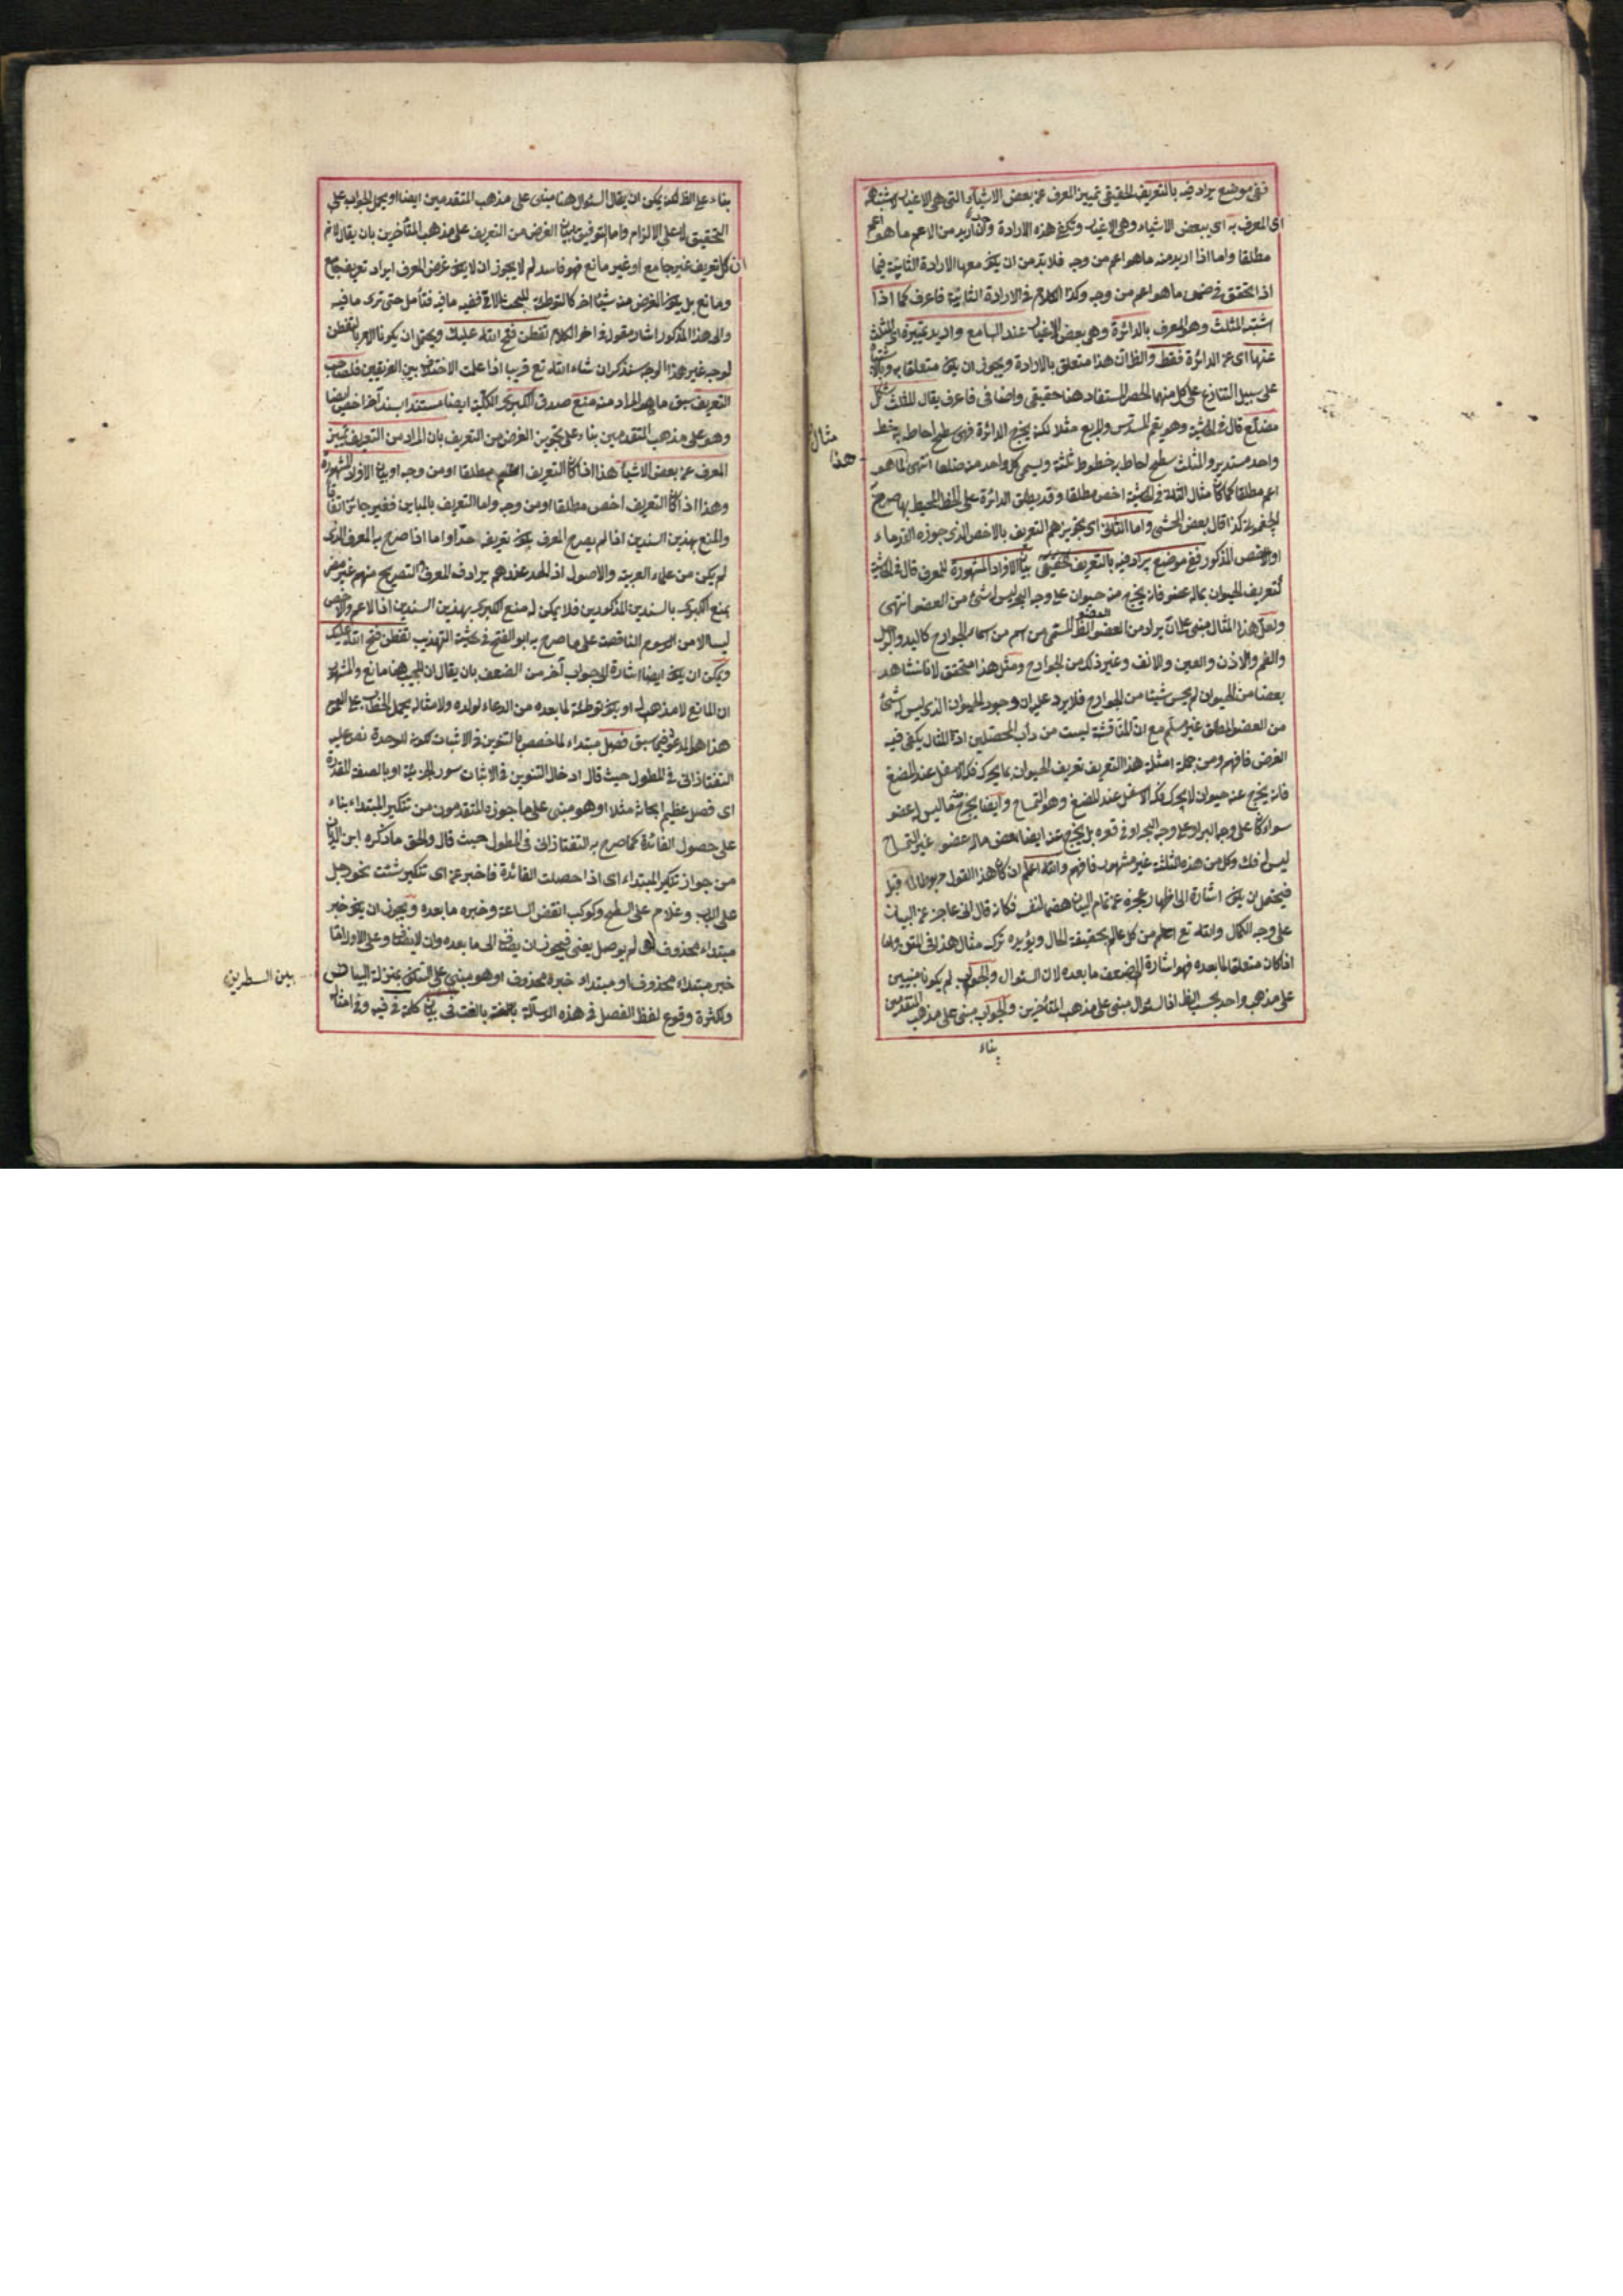 ففى موضع يراد فيه بالتعريف الحقيقى تمييز المعرف عن بعض الاشياء التى هى الاغيار لاشتباهه
اى المعرف به اى ببعض الاشياء وهى الاغيار وتكفى هذه الارادة ان اريد من الاعم ما هو اعم
مطلقا واما اذا اريد منه ما هو اعم من وجه فلا بد من ان يكون معها الارادة الثانية فيما
اذا تحقق فى ضمن ما هو اعم من وجه وكذا الكلام فى الارادة الثانية فاعرف كما اذا
اشتبه المثلث وهو المعرف بالدائرة وهى بعض الاغيار عند السامع واريد تمييزه اى المثلث
عنها اى عن الدائرة فقط والظ ان هذا متعلق بالارادة ويجوز ان يكون متعلقا به وبالاشتباه
على سبيل التنازع على كل منهما الحصر المستفاد هنا حقيقى واضافى فاعرف يقال المثلث شكل
مضلع قال فى الحاشية وهو يعم المسدس والمربع مثلا لكنه يخرج الدائرة فهى سطح احاط به خط
واحد مستدير والمثلث سطح احاط به خطوط ثلثة ويسمى كل واحد من ضلعا انتهى لما هو
مثال هذا
اعم مطلقا كما كان مثال الثلة فى الحاشية اخص مطلقا وقد يطلق الدائرة على الخط المحيط بها صرح
الجغمينى كذا قال بعض المحشى واما الثانى اى تجويزهم التعريف بالاخص الذى جوزه القدماء
او الاخص المذكور ففى موضع يراد فيه بالتعريف الحقيقى بيان الافراد المشهورة للمعرف قال فى الحاشية
كتعريف الحيوان بماله عضو فانه يخرج منه حيوان على وجه البحر ليس له شئ من العضو انتهى
ولعل هذا المثال مبنى على ان يراد من العضو العضو الظ المسمى من اسم من اسماء الجوارح كاليد والرجل
والفم والاذن والعين والانف وغير ذلك من الجوارح ومثل هذا متحقق لانا نشاهد
بعضا من الحيوان لم يحس شيئا من الجوارح فلا يرد عليه ان وجود الحيوان الذى ليس له شئ
من العضو المطلق غير مسلم مع ان المناقشة ليست من دأب المحصلين اذ المثال يكفى فيه
الفرض فافهم ومن جملة امثلة هذا التعريف تعريف الحيوان بما يحرك فكه الاسفل عند المضغ
فانه يخرج عنه حيوان لا يحرك فكه الاسفل عند المضغ وهو التمساح وايضا يخرج عنه ما ليس له عضو
سواء كان على وجه البر او على وجه البحر او فى قعره بل يخرج عنه ايضا بعض ماله عضو غير التمساح
ليس له فك وكل من هذه الثلثة غير مشهور فافهم والله اعلم ان كان هذا القول مربوطا الى قبل
فيحتمل ان يكون اشارة الى اظهار عجزه عن تمام البيان هضما لنفسه فكانه قال انى عاجز عن البيان
على وجه الكمال والله تع اعلم من كل عالم بحقيقة الحال ويؤيده تركه مثال هذا فى المتن واما
اذا كان متعلقا لما بعده فهو اشارة الى ضعف ما بعده لان السئوال والجواب لم يكونا مبنيين
على مذهب واحد بحسب الظ اذ السئوال مبنى على مذهب المتأخرين والجواب مبنى على مذهب المتقدمين
بناء
بناء على الظ لكن يمكن ان يقال السئوال هنا مبنى على مذهب المتقدمين ايضا او يحمل الجواب على
التحقيق لا على الالزام واما التوفيق ببيان الغرض من التعريف على مذهب المتأخرين بان يقال لا نم
ان كل تعريف غير جامع او غير مانع فهو فاسد لم لا يجوز ان لا يكون غرض المعرف ايراد تعريف جامع
ومانع بل يكون الغرض منه شيئا اخر كالتوطئة للبحث الاتى ففيه ما فيه فتأمل حتى ترى ما فيه
والى هذا المذكور اشار بقوله فى اخر الكلام تفطن فتح الله عليك ويحتمل ان يكون الامر بالتفطن
لوجه غير هذا الوجه سنذكر ان شاء الله تع قريبا اذا علمت الاختلاف بين الفريقين فلصاحب
التعريف سبق ما هو المراد منه منع صدق الكبرى الكلية ايضا مستندا بسند آخر اخص ايضا
وهو على مذهب المتقدمين بناء على تجويز الغرض من التعريف بان المراد من التعريف تمييز
المعرف عن بعض الاشياء هذا اذا كان التعريف اعم مطلقا او من وجه او بيان الافراد المشهورة
وهذا اذا كان التعريف اخص مطلقا او من وجه واما التعريف بالمباين فغير جائز اتفاقا
والمنع بهذين السندين اذا لم يصرح المعرف بكون تعريفه حدا واما اذا صرح به المعرف الذى
لم يكن من علماء العربية والاصول اذ الحد عندهم يرادف المعرف فالتصريح منهم غير مضر
بمنع الكبرى بالسندين المذكورين فلا يمكن له منع الكبرى بهذين السندين اذ الاعم والاخص
ليسا الا من الرسوم الناقصة على ما صرح به ابو الفتح فى حاشية التهذيب تفطن فتح الله عليك
ويمكن ان يكون ايضا اشارة الى جواب آخر من الضعف بان يقال ان المجيب هنا مانع والمشهور
ان المانع لا مذهب له او يكون توطئة لما بعده من الدعاء لولده ولامثاله بحمل الخطاب على العموم
هذا هو المدعو فيما سبق فصل مبتداء لما خصص بالتنوين فى الاثبات لكونه للوحدة نص عليه
التفتازانى فى المطول حيث قال ادخال التنوين فى الاثبات سور الجزئية او بالصفة المقدرة
اى فصل عظيم ابحاثه مثلا او هو مبنى على ما جوزه المتقدمون من تنكير المبتداء بناء
على حصول الفائدة كما صرح به التفتازانى فى المطول حيث قال والحق ما ذكره ابن الدهان
من جواز تنكير المبتداء اى اذا حصلت الفائدة فاخبر عن اى تنكير شئت نحو رجل
على الباب وغلام على السطح وكوكب انقض الساعة وخبره ما بعده ويجوز ان يكون خبر
مبتداء محذوف اى لم يوصل يعنى فيجوز ان يضاف الى ما بعده وان لا يضاف وعلى الاول اما
خبر مبتداء محذوف او مبتداء خبره محذوف او هو مبنى على السكون بمنزلة البياض
بين السطرين
ولكثرة وقوع لفظ الفصل فى هذه الرسالة بالغنا بالغت فى بيان كلمة فى فيه وفى امثاله